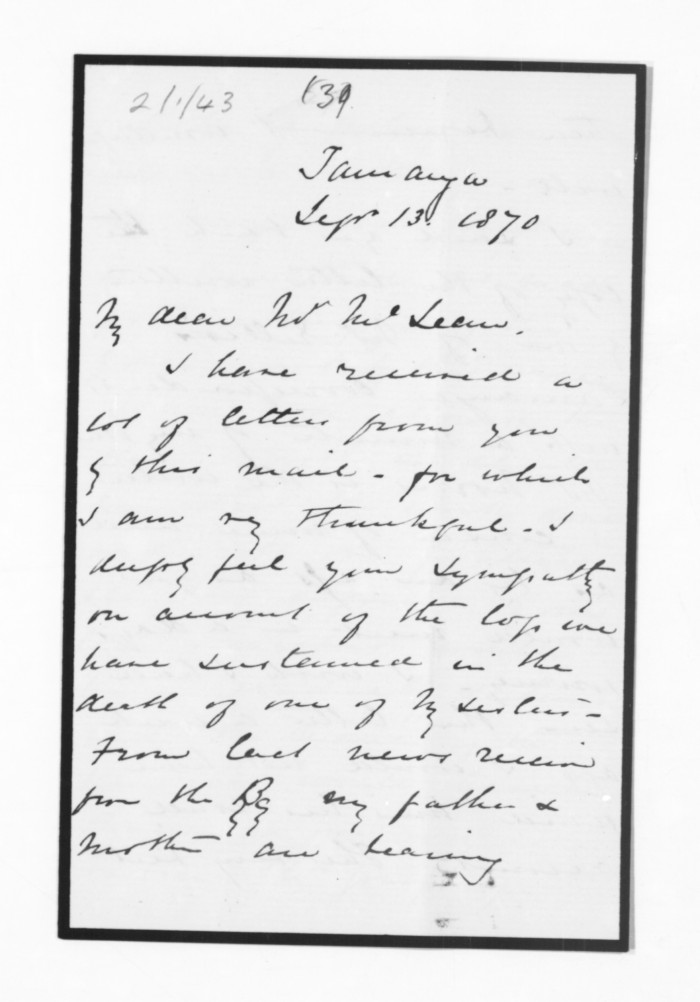 2/1/43 139.
Tauranga
Sepr 13. 1870
My dear Mr McLean.
I have received a
lot of letters from you
by this mail - for which
I am very thankful - I
deeply feel your sympathy
on account of the loss we
have sustained in the
death of one of my sisters -
From last news received
from the Bay my father &
mother are bearing